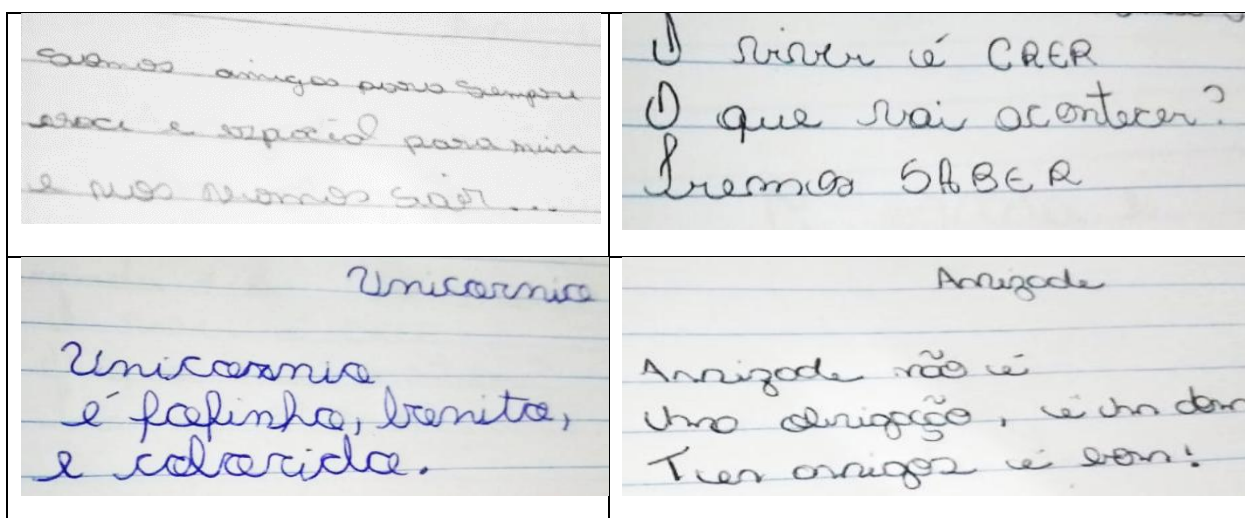 amigos para sempre
voce e especial para mim
e nos vamos sair...
O viver é CRER
O que vai acontecer?
Iremos SABER
Unicornio
Unicornio
é fofinho, bonito,
e colorido.
Amizade
Amizade não é
Uma obrigação, é um dom
Ter amigos é bom!